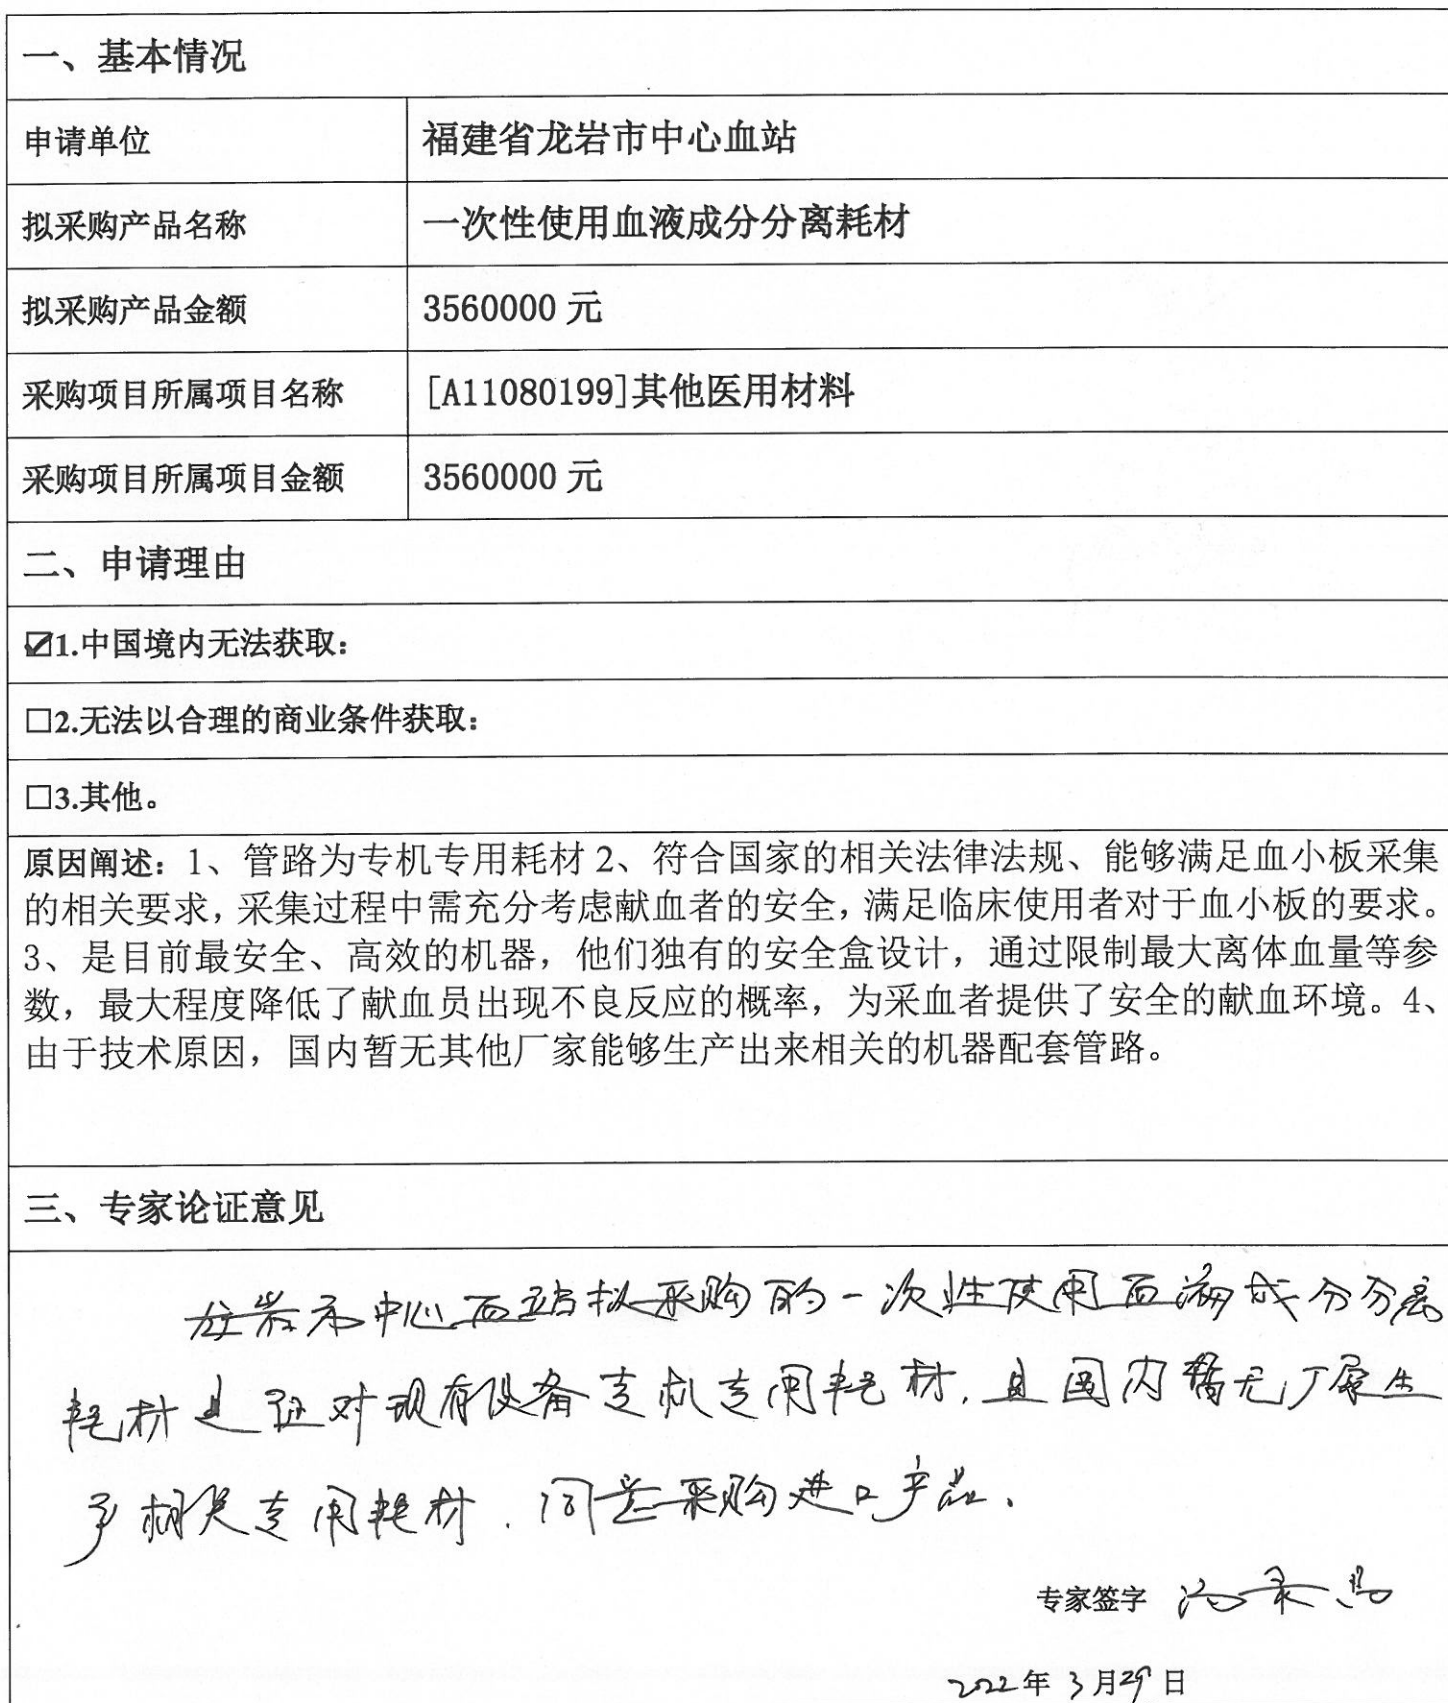 一、基本情况
申请单位 福建省龙岩市中心血站
拟采购产品名称 一次性使用血液成分分离耗材
拟采购产品金额 3560000 元
采购项目所属项目名称 [A11080199]其他医用材料
采购项目所属项目金额 3560000 元
二、申请理由
☑1.中国境内无法获取：
□2.无法以合理的商业条件获取：
□3.其他。
原因阐述：1、管路为专机专用耗材 2、符合国家的相关法律法规、能够满足血小板采集
的相关要求，采集过程中需充分考虑献血者的安全，满足临床使用者对于血小板的要求。
3、是目前最安全、高效的机器，他们独有的安全盒设计，通过限制最大离体血量等参
数，最大程度降低了献血员出现不良反应的概率，为采血者提供了安全的献血环境。4、
由于技术原因，国内暂无其他厂家能够生产出来相关的机器配套管路。
三、专家论证意见
龙岩市中心血站拟采购的一次性使用血液成分分离
耗材是针对现有设备专机专用耗材，且国内暂无厂家生
产相关专用耗材，同意采购进口产品。
专家签字
2022年3月29日